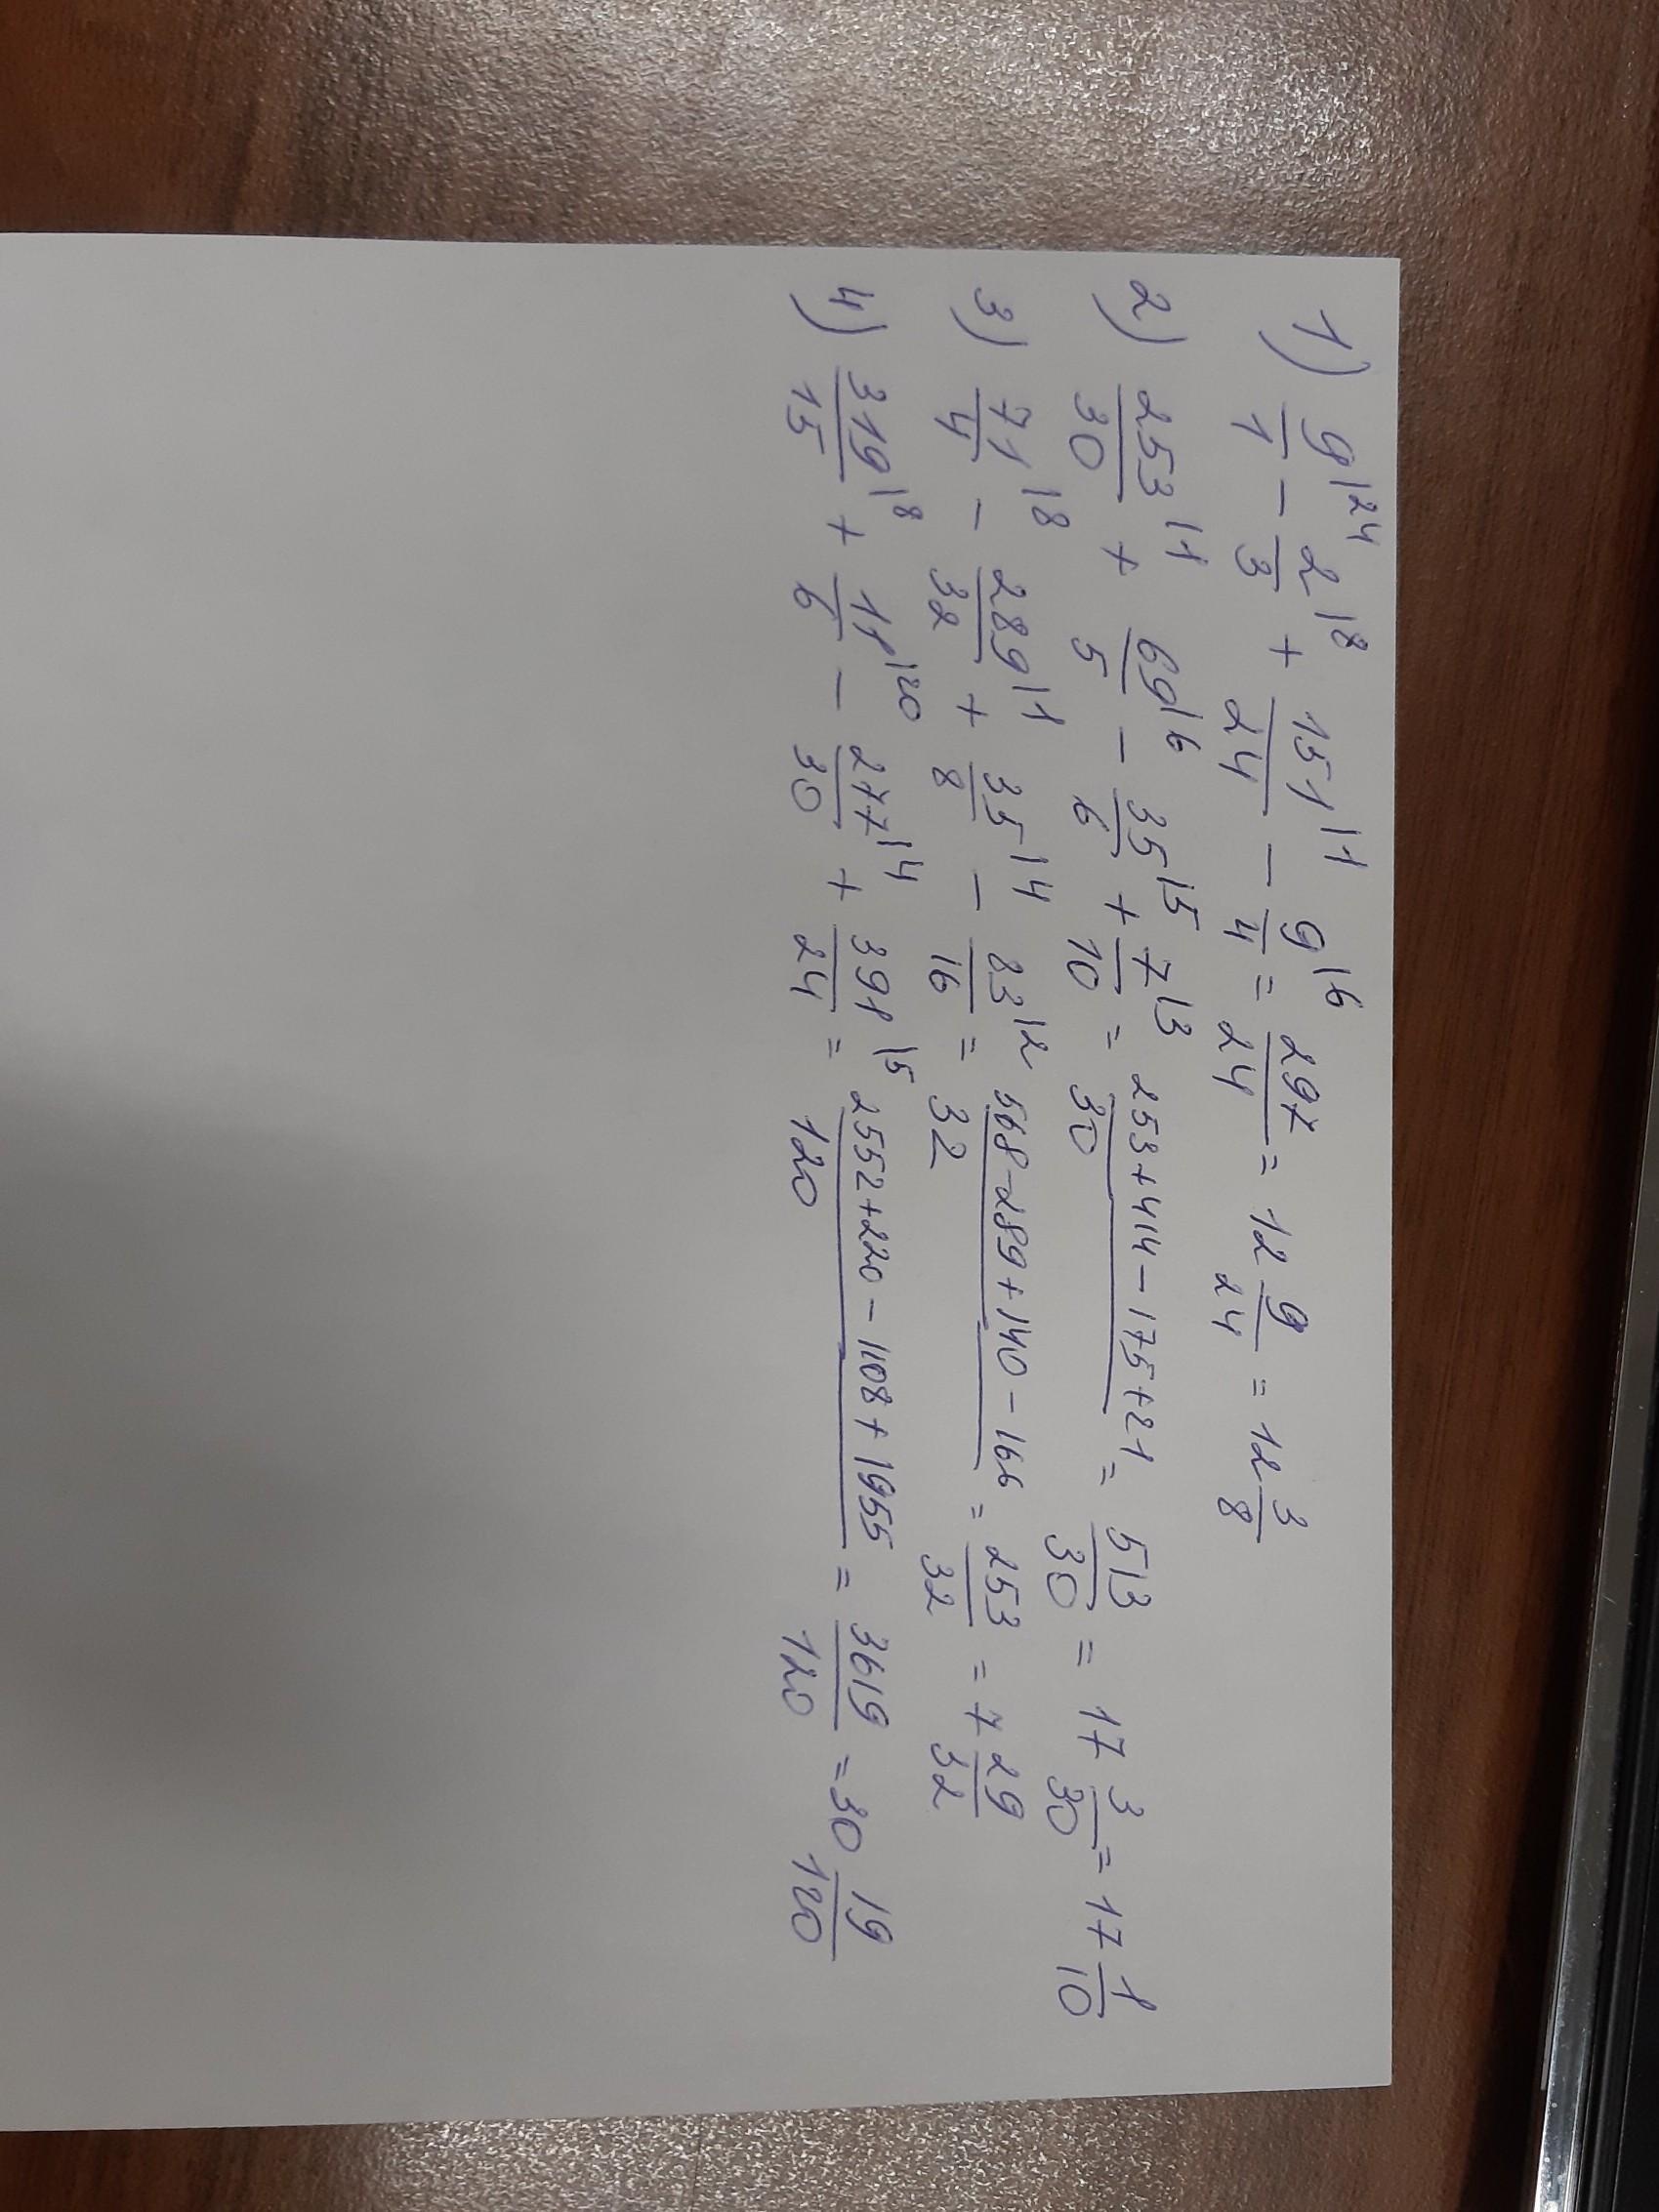 1) 9/1 |24 − 2/3 |8 + 151/24 |1 − 9/4 |6 = 297/24 = 12 9/24 = 12 3/8
2) 253/30 |1 + 69/5 |6 − 35/6 |5 + 7/10 |3 = (253+414−175+21)/30 = 513/30 = 17 3/30 = 17 1/10
3) 71/4 |8 − 289/32 |1 + 35/8 |4 − 83/16 |2 = (568−289+140−166)/32 = 253/32 = 7 29/32
4) 319/15 |8 + 11/6 |20 − 277/30 |4 + 391/24 |5 = (2552+220−1108+1955)/120 = 3619/120 = 30 19/120